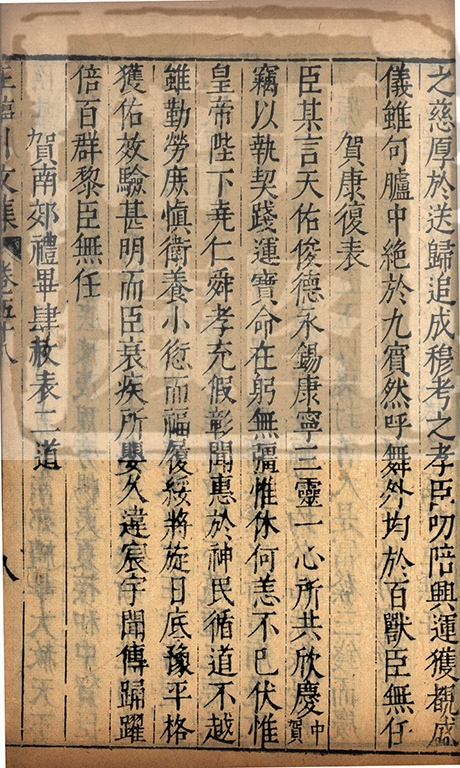 之慈厚於送歸追成穆考之孝臣叨陪興運獲覩盛
儀雖句臚中絶於九賓然呼舞外均於百獸臣無任
賀康復表
臣某言天佑俊德永錫康寧三靈一心所共欣慶中賀
竊以執契踐運寶命在躬無疆惟休何恙不已伏惟
皇帝陛下堯仁舜孝充假彰聞惠於神民循道不越
雖勤勞庶慎衛養小愆而福履綏將旋日底豫平格
獲佑效驗甚明而臣衰疾所嬰久違宸宇聞傳踊躍
倍百群黎臣無任
賀南郊禮畢肆赦表二道
王臨川文集 卷五十八 八